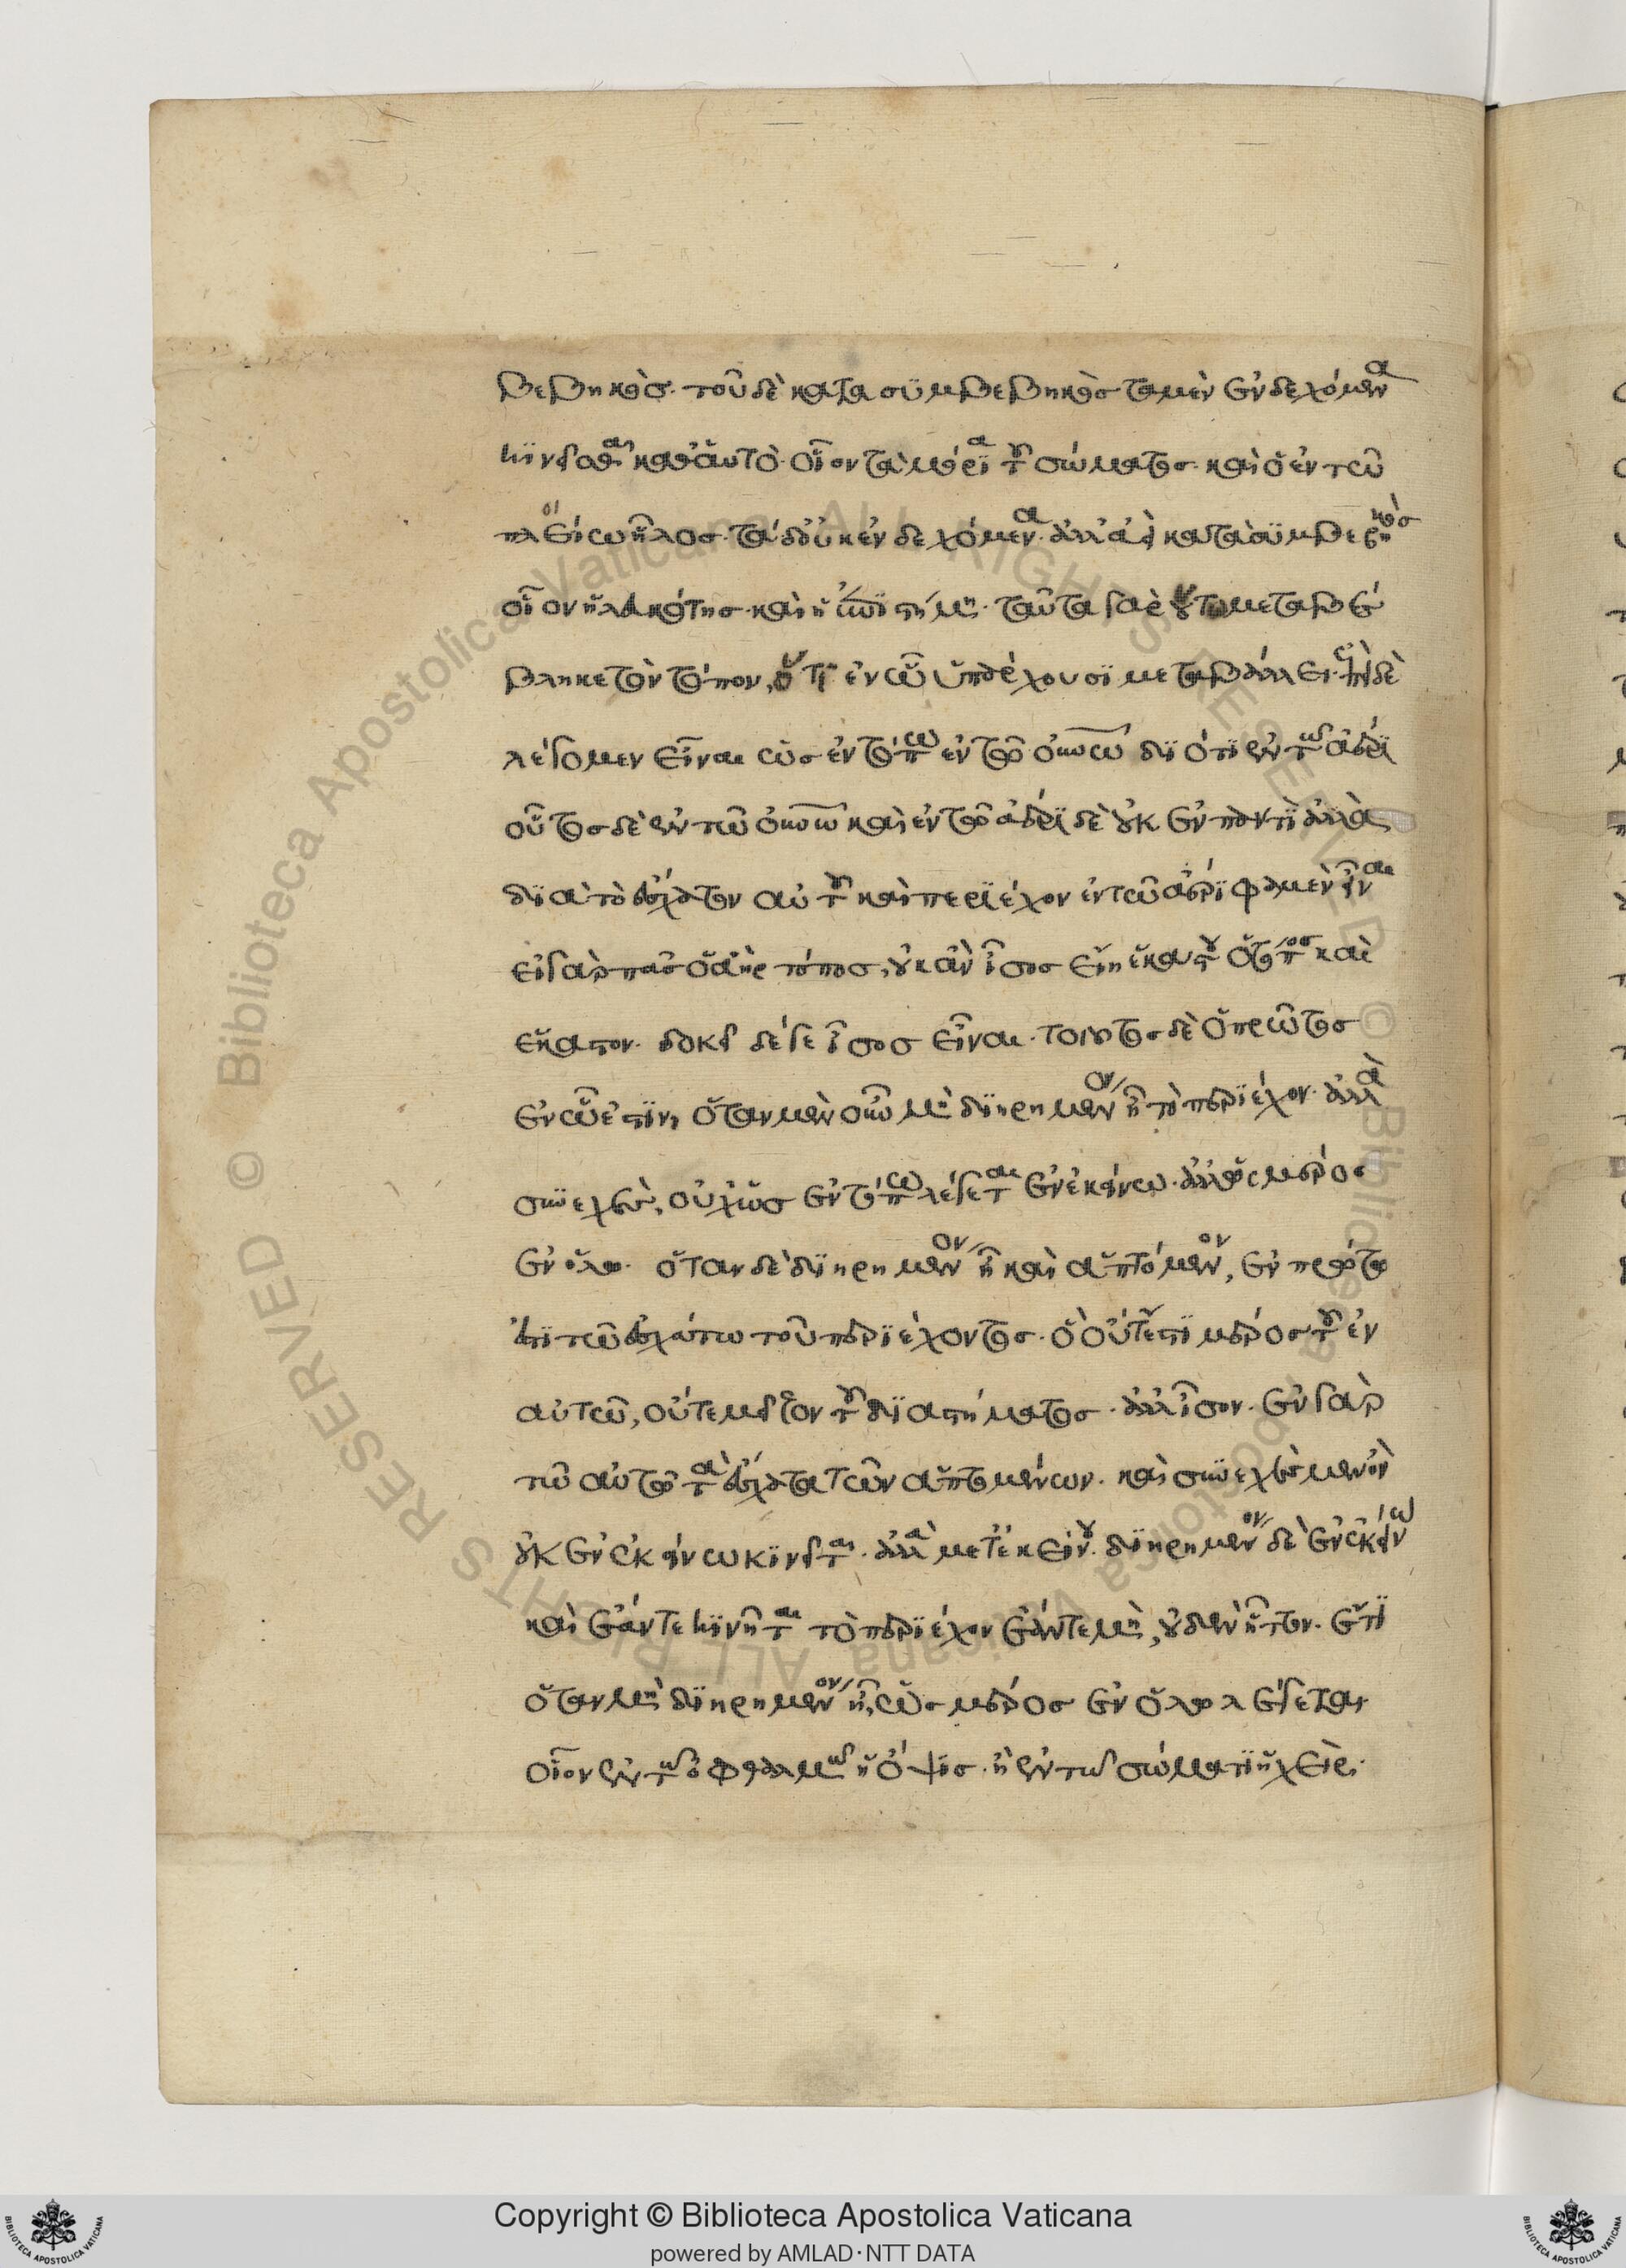 βεβηκός· τοῦ δὲ κατα συμβεβηκὸς τὰ μὲν ἐνδεχόμενα
κινεῖσθαι καθ' αὑτὸ· οἷον τὰ μόρια τοῦ σώματος· καὶ ὁ ἐν τῶ
πλοίω ἧλος· τὰ δ' οὐκ ἐνδεχόμενα· ἀλλ' ἀεὶ κατὰ συμβεβηκὸς
οἷον ἡ λευκότης· καὶ ἡ ἐπιστήμη· ταῦτα γὰρ οὕτω μεταβέ
βληκε τὸν τόπον, ὅτι ἐν ᾧ ὑπάρχουσι μεταβάλλει· ἐπεὶ δὲ
λέγομεν εἶναι ὡς ἐν τόπω ἐν τῶ οὐνῶ διότι ἐν τῶ ἀέρι
οὗτος δὲ ἐν τῶ οὐνῶ καὶ ἐν τῶ ἀέρι δὲ οὐκ ἐν παντὶ ἀλλὰ
διὰ τὸ ἔσχατον αὐτοῦ καὶ περιέχον ἐν τῶ ἀέρι φαμὲν εἶναι
εἰ γὰρ πᾶς ὁ ἀὴρ τόπος, οὐκ ἂν ἴσος εἴη ἑκάστου ὁ τόπος καὶ
ἕκαστον· δοκεῖ δέ γε ἴσος εἶναι· τοιοῦτος δὲ ὁ πρῶτος
ἐν ᾧ ἐστίν, ὅταν μὲν οὖν μὴ διηρημένον ἦ τὸ περιέχον· ἀλλὰ
συνεχὲς, οὐχ ὡς ἐν τόπω λέγεται ἐν ἐκείνω· ἀλλ' ὡς μέρος
ἐν ὅλω· ὅταν δὲ διηρημένον ἦ καὶ ἁπτόμενον, ἐν πρώτω
ἐστὶ τῶ ἐσχάτω τοῦ περιέχοντος· ὃ οὔτ' ἐστὶ μέρος τοῦ ἐν
αὐτῶ, οὔτε μεῖζον τοῦ διαστήματος· ἀλλ' ἴσον· ἐν γὰρ
τῶ αὐτῶ τὰ ἔσχατα τῶν ἁπτομένων· καὶ συνεχὲς μὲν ὂν
οὐκ ἐν ἐκείνω κινεῖται· ἀλλὰ μετ' ἐκείνου· διηρημένον δὲ ἐν ἐκείνω
καὶ ἐάν τε κινῆται τὸ περιέχον ἐάν τε μὴ, οὐδὲν ἧττον· ἔτι
ὅταν μὴ διηρημένον ἦ, ὡς μέρος ἐν ὅλω λέγεται·
οἷον ἐν τῶ ὀφθαλμῶ ἡ ὄψις· ἢ ἐν τῶ σώματι ἡ χείρ·
Copyright © Biblioteca Apostolica Vaticana
powered by AMLAD·NTT DATA